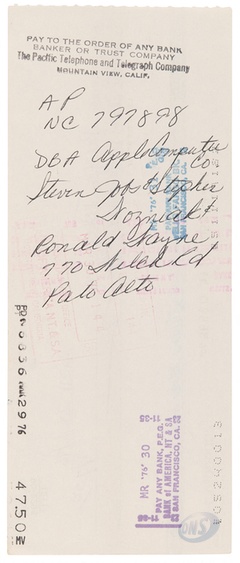 PAY TO THE ORDER OF ANY BANK
BANKER OR TRUST COMPANY
The Pacific Telephone and Telegraph Company
MOUNTAIN VIEW, CALIF.
AP
NC 797898
DBA Apple Computer
Co.
Steven Jobs & Stephen
Wozniak &
Ronald Wayne
770 Welch Rd
Palo Alto
MR '76
29 76
4750 MV
11-35
MR '76 30
PAY ANY BANK, P.E.G.
BANK of AMERICA, NT & SA
SAN FRANCISCO, CA.
DNS